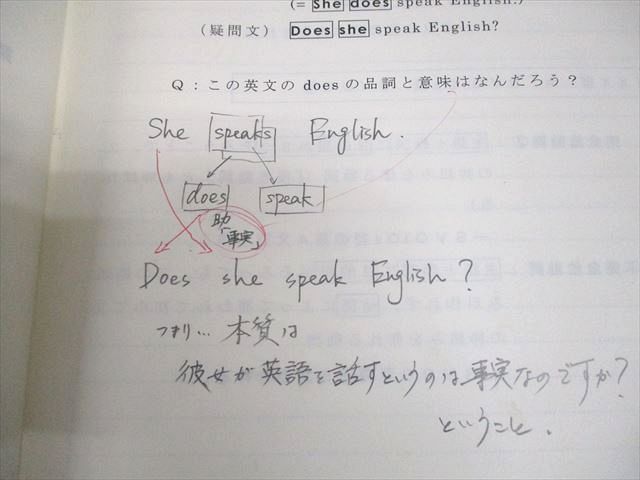 (= She does speak English.)
(疑問文) Does she speak English?
Q:この英文の does の品詞と意味はなんだろう?
She speaks English.
does speak
助
「事実」
Does she speak English?
つまり… 本質は
彼女が英語を話すというのは事実なのですか?
ということ.